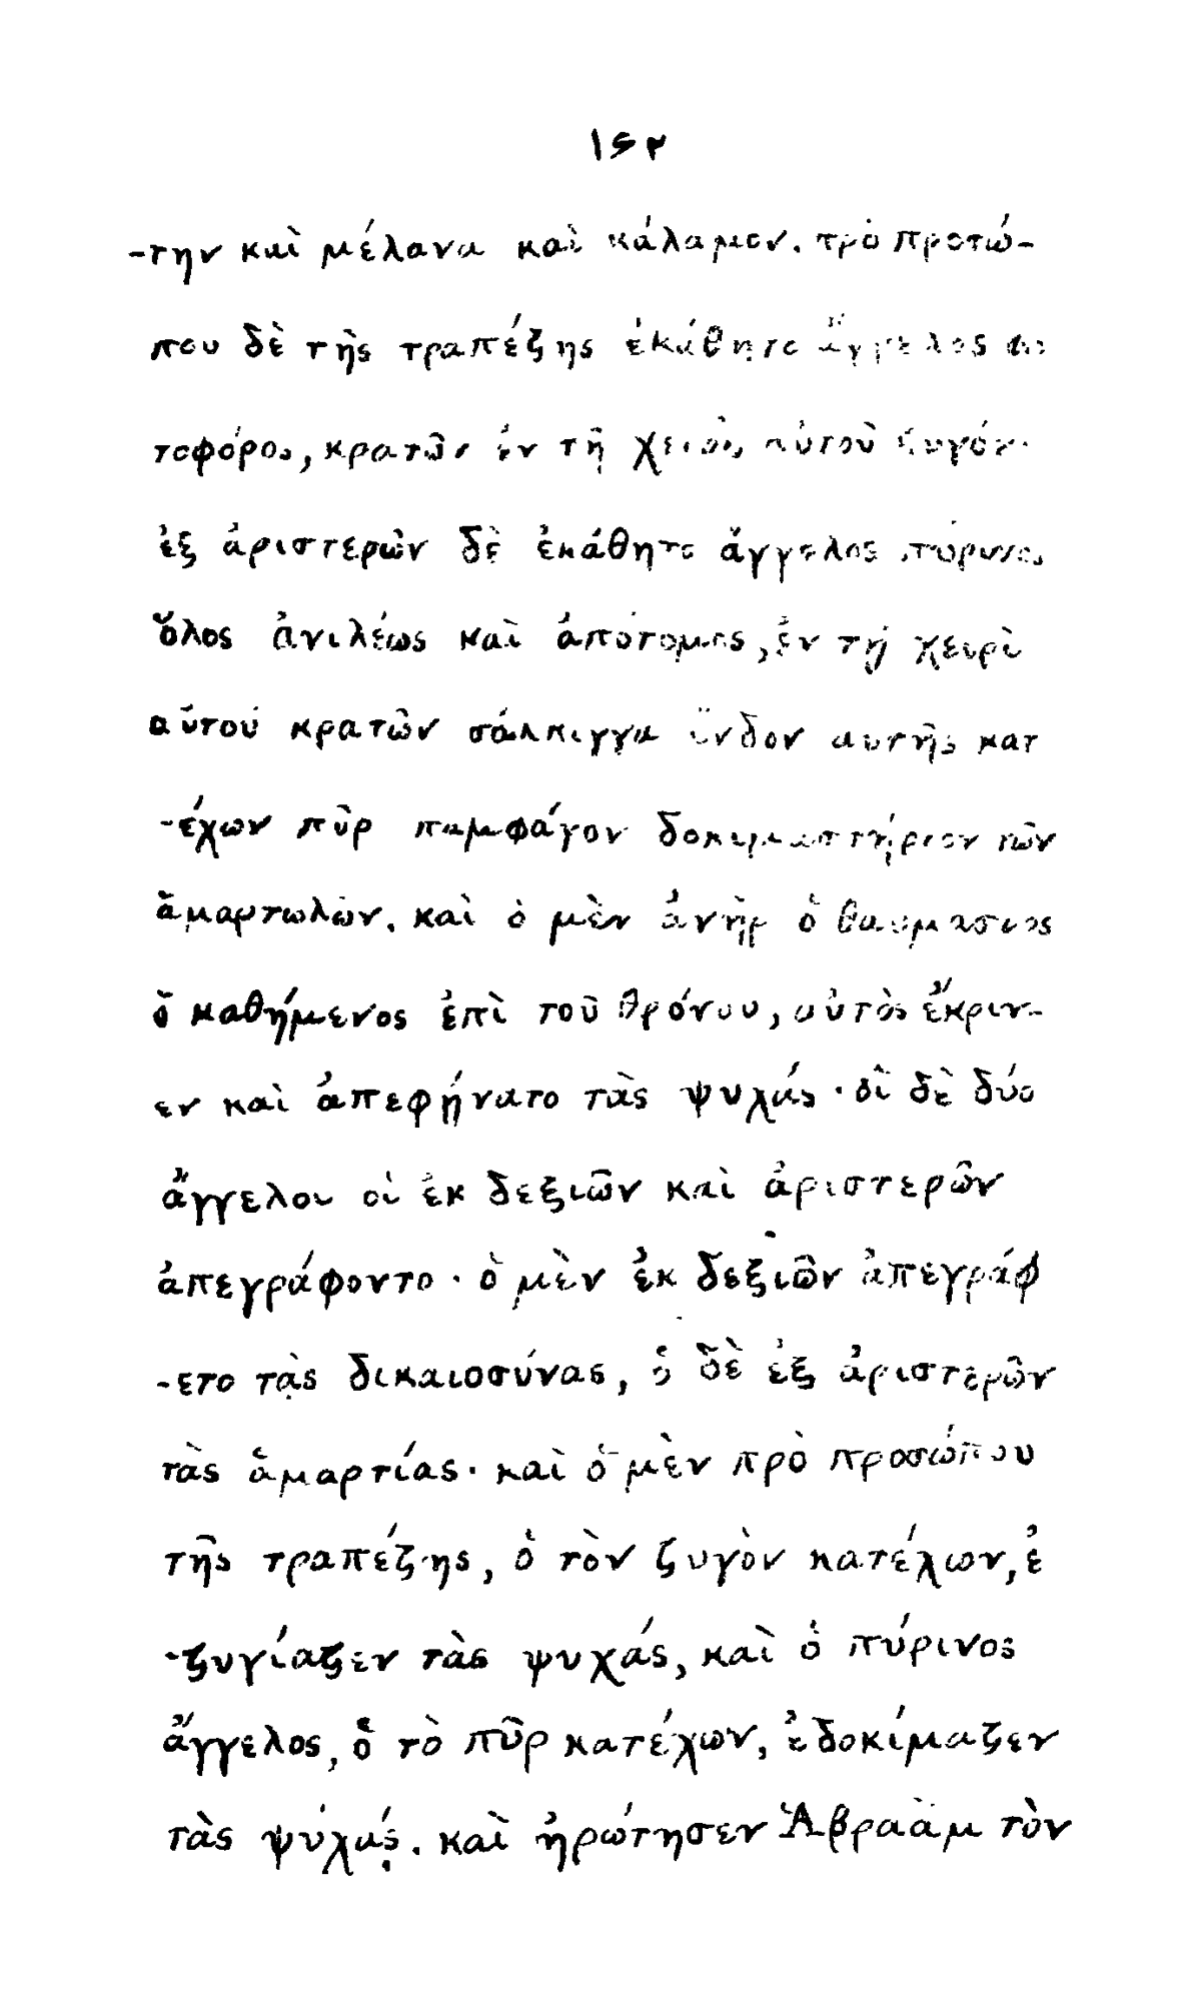 ۱۶۲
-την καὶ μέλανα καὶ κάλαμον. πρὸ προτώ-
που δὲ τῆς τραπέζης ἐκάθητο ἄγγελος φω
τοφόρος, κρατῶν ἐν τῇ χειρὶ αὐτοῦ ζυγόν·
ἐξ ἀριστερῶν δὲ ἐκάθητο ἄγγελος πύρινος
ὅλος ἀνιλέως καὶ ἀπότομος, ἐν τῇ χειρὶ
αὐτοῦ κρατῶν σάλπιγγα ἔνδον αυτῆς κατ
-έχων πῦρ παμφάγον δοκιμαστήριον τῶν
ἁμαρτωλῶν. καὶ ὁ μὲν ἀνὴρ ὁ θαυμασιος
ὁ καθήμενος ἐπὶ τοῦ θρόνου, αὐτὸς ἔκριν-
εν καὶ ἀπεφήνατο τὰς ψυχάς· οἱ δὲ δύο
ἄγγελοι οἱ ἐκ δεξιῶν καὶ ἀριστερῶν
ἀπεγράφοντο· ὁ μὲν ἐκ δεξιῶν ἀπεγράφ
-ετο τὰς δικαιοσύνας, ὁ δὲ ἐξ ἀριστερῶν
τὰς ἁμαρτίας· καὶ ὁ μὲν πρὸ προσώπου
τῆς τραπέζης, ὁ τὸν ζυγὸν κατέχων, ἐ
-ζυγίαζεν τὰς ψυχάς, καὶ ὁ πύρινος
ἄγγελος, ὁ τὸ πῦρ κατέχων, ἐδοκίμαζεν
τὰς ψύχάς. καὶ ἠρώτησεν Ἀβραὰμ τὸν